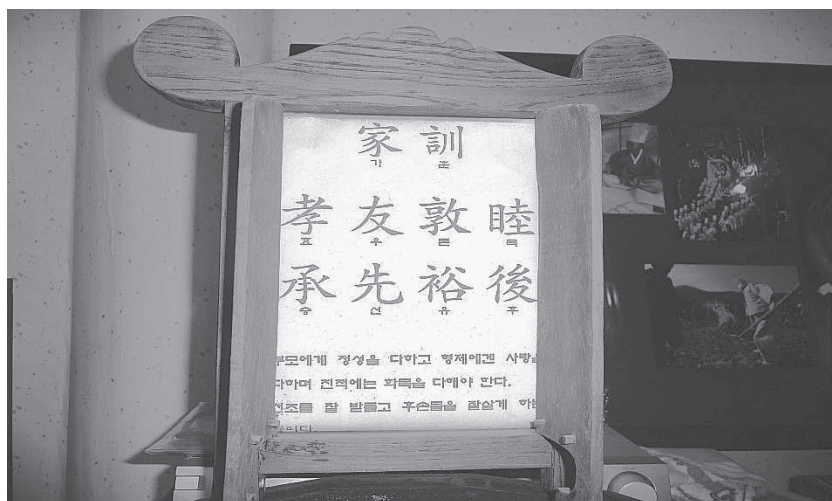 家訓
가훈
孝友敦睦
효우돈목
承先裕後
승선유후
부모에게 정성을 다하고 형제에겐 사랑을
다하며 친척에는 화목을 다해야 한다.
선조를 잘 받들고 후손들을 잘살게 하는